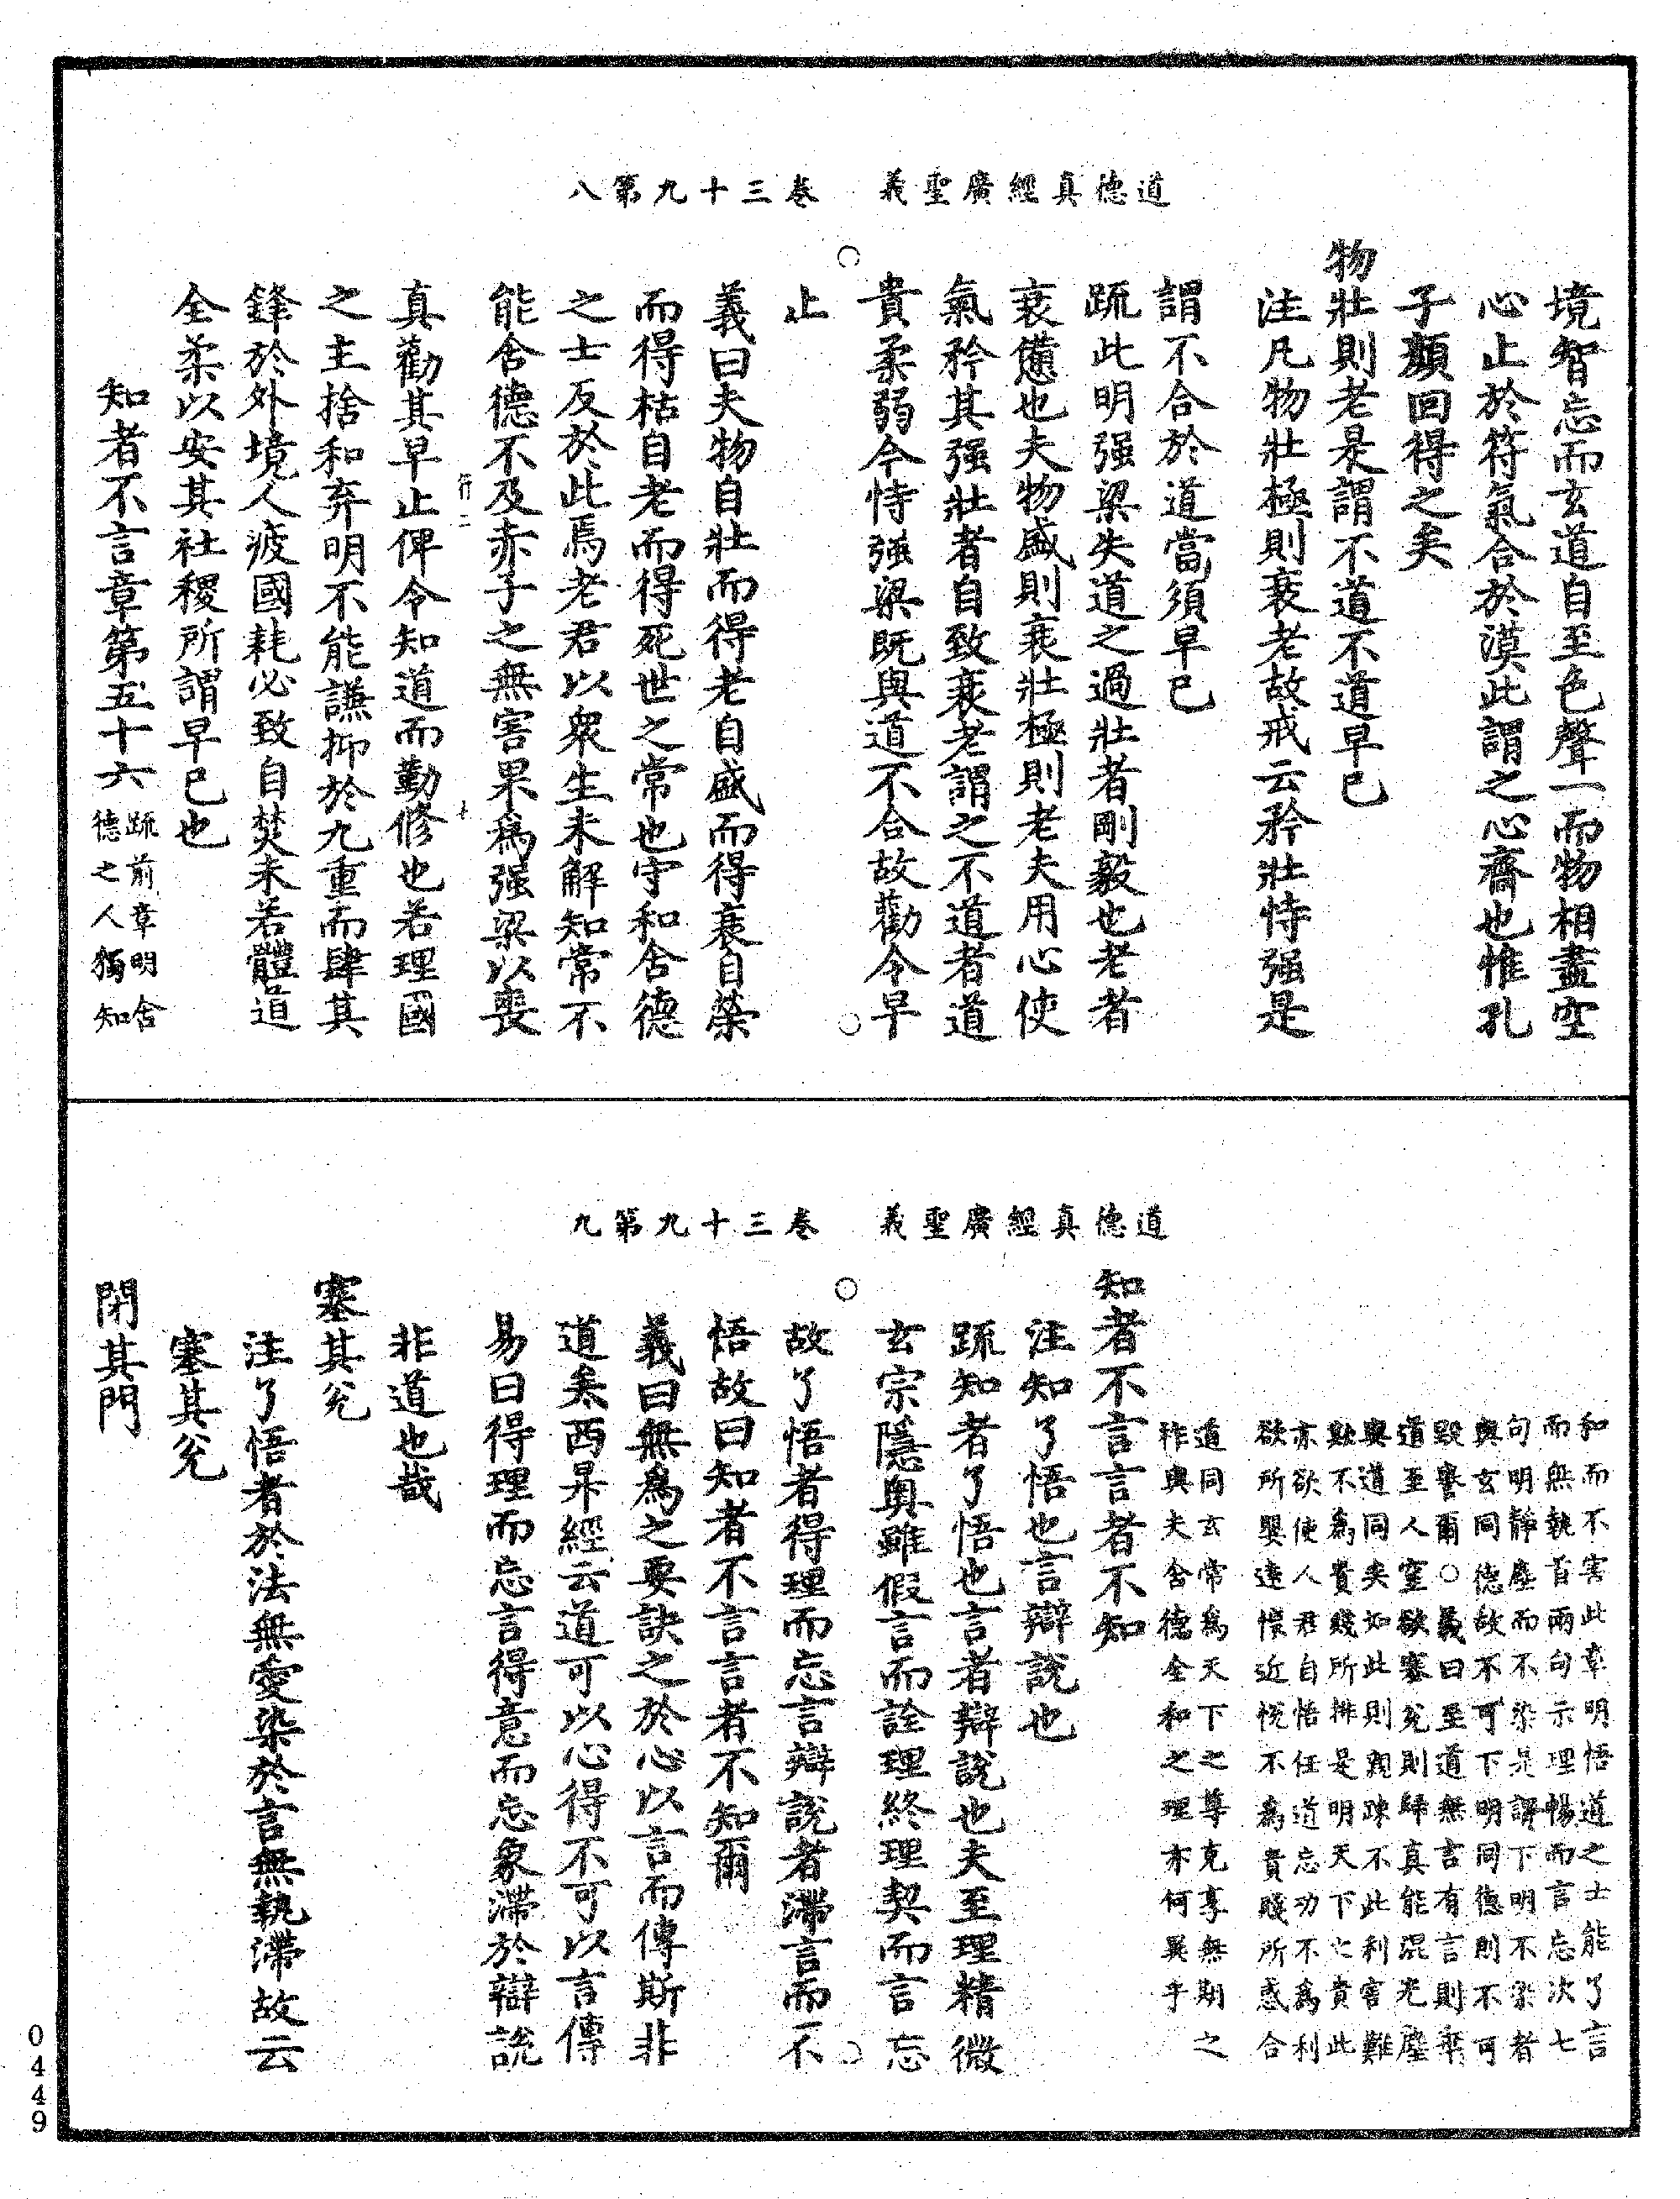 道德真經廣聖義　卷三十九第八
境智忘而玄道自至色聲一而物相盡空
心止於符氣合於漠此謂之心齋也惟孔
子顏回得之矣
物壯則老是謂不道不道早已
注凡物壯極則衰老故戒云矜壯恃强是
謂不合於道當須早已
疏此明强梁失道之過壯者剛毅也老者
衰憊也夫物盛則衰壯極則老夫用心使
氣矜其强壯者自致衰老謂之不道者道
貴柔弱今恃强梁既與道不合故勸令早
止
義曰夫物自壯而得老自盛而得衰自榮
而得枯自老而得死世之常也守和含德
之士反於此焉老君以衆生未解知常不
能含德不及赤子之無害果為强梁以喪
真勸其早止俾令知道而勤修也若理國
之主捨和弃明不能謙抑於九重而肆其
鋒於外境人疲國耗必致自焚未若體道
全柔以安其社稷所謂早已也
知者不言章第五十六
疏前章明含
德之人獨知
道德真經廣聖義　卷三十九第九
和而不害此章明悟道之士能了言
而無執首兩句示理暢而言忘次七
句明靜塵而不染是謂下明不染者
與玄同德故不可下明同德則不可
毀譽爾○義曰至道無言有言則乖
道至人窒欲塞兌則歸真能混光塵
與道同矣如此則親疎不此利害難
欺不為貴賤所排是明天下之貴此
亦欲使人君自悟任道忘功不為利
欲所嬰遠懷近悅不為貴賤所惑合
道同玄常為天下之尊克享無期之
祚與夫含德全和之理亦何異乎
知者不言言者不知
注知了悟也言辯說也
疏知者了悟也言者辯說也夫至理精微
玄宗隱奥雖假言而詮理終理契而言忘
故了悟者得理而忘言辯說者滯言而不
悟故曰知者不言言者不知爾
義曰無為之要訣之於心以言而傳斯非
道矣西昇經云道可以心得不可以言傳
易曰得理而忘言得意而忘象滯於辯說
非道也哉
塞其兌
注了悟者於法無愛染於言無執滯故云
塞其兌
閉其門
0449